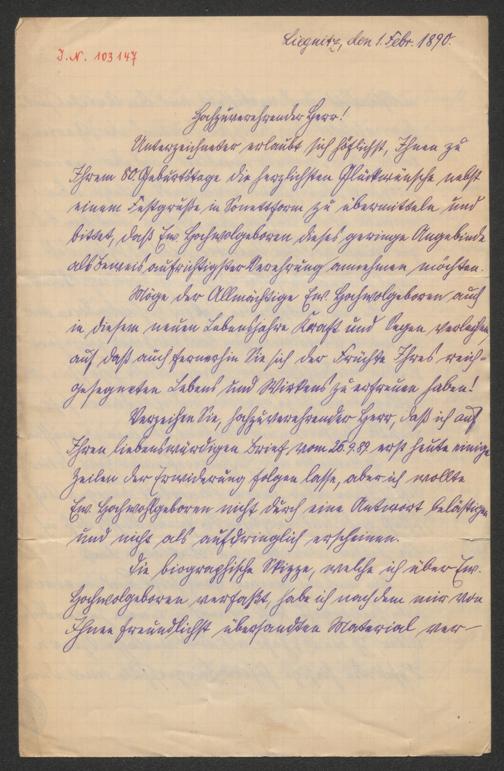 Liegnitz, den 1. Febr. 1890.
I.N. 103147
Hochzuverehrender Herr!
Unterzeichneter erlaubt sich höflichst, Ihnen zu
Ihrem 80. Geburtstage die herzlichsten Glückwünsche nebst
einem Festgruße in Sonettform zu übermitteln und
bittet, daß Ew. Hochwolgeboren dieses geringe Angebinde
als Beweis aufrichtigster Verehrung annehmen möchten.
Möge der Allmächtige Ew. Hochwolgeboren auch
in diesem neuen Lebensjahre Kraft und Segen verleihen,
auf daß auch fernerhin Sie sich der Früchte Ihres reich-
gesegneten Lebens und Wirkens zu erfreuen haben!
Verzeihen Sie, hochzuverehrender Herr, daß ich auf
Ihren liebenswürdigen Brief vom 26.9.89 erst heute einige
Zeilen der Erwiderung folgen lasse, aber ich wollte
Ew. Hochwohlgeboren nicht durch eine Antwort belästigen
und nicht als aufdringlich erscheinen.
Die biographische Skizze, welche ich über Ew.
Hochwolgeboren verfaßt, habe ich nach dem mir von
Ihnen freundlichst übersandten Material ver-